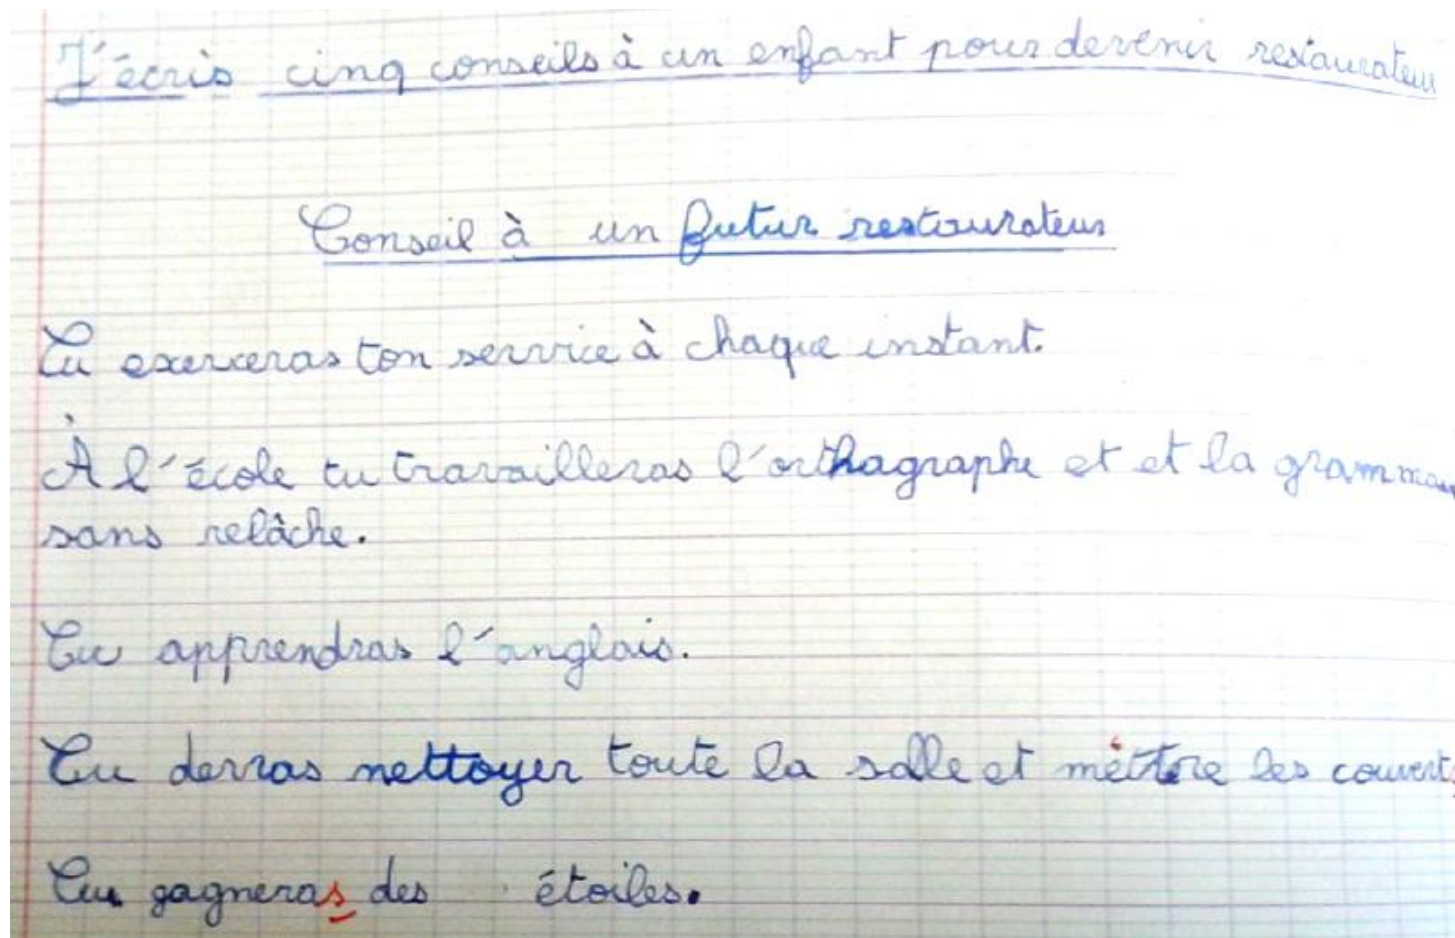 J'écris cinq conseils à un enfant pour devenir restaurateur
Conseil à un futur restaurateur
Tu exerceras ton service à chaque instant.
À l'école tu travailleras l'orthagraphe et et la gramma
sans relâche.
Tu apprendras l'anglais.
Tu devras nettoyer toute la salle et mettre les couvert
Tu gagneras des étoiles.